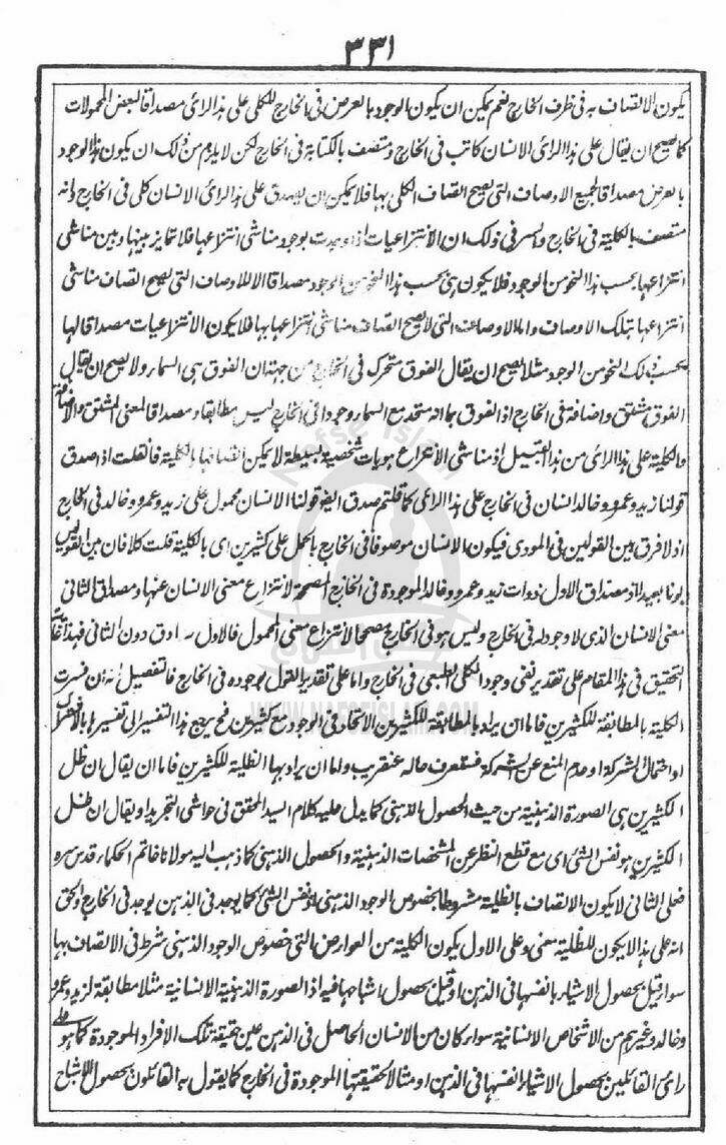 ٣٣١
يكون الاتصاف به فى ظرف الخارج نعم يمكن ان يكون الوجود بالعرض فى الخارج للكلى على هذا الرائ مصداقا لبعض المحمولات
كما يصح ان يقال على هذا الرائ الانسان كاتب فى الخارج ومتصف بالكتابة فى الخارج لكن لا يلزم من ذلك ان يكون هذا الوجود
بالعرض مصداقا لجميع الاوصاف التى يصح اتصاف الكلى بها فلا يمكن ان يصدق على هذا الرائ الانسان كلى فى الخارج وانه
متصف بالكلية فى الخارج والسر فى ذلك ان الانتزاعيات اذا وجدت بوجود مناشى انتزاعها فلا تمايز بينها وبين مناشى
انتزاعها بحسب هذا النحو من الوجود فلا يكون هى بحسب هذا النحو من الوجود مصداقا الا للاوصاف التى يصح اتصاف مناشى
انتزاعها بتلك الاوصاف واما الاوصاف التى لا يصح اتصاف مناشى انتزاعها بها فلا يكون الانتزاعيات مصداقا لها
بحسب ذلك النحو من الوجود مثلا يصح ان يقال الفوق متحرك فى الخارج من جهة ان الفوق هى السماء ولا يصح ان يقال
الفوق مشتق واضافة فى الخارج اذ الفوق بما انه متحد مع السماء وجودا فى الخارج ليس مطابقا ومصداقا لمعنى المشتق والاضافة
والكلية على هذا الرائ من هذا القبيل اذ مناشى الانتزاع هويات شخصية بسيطة لا يمكن اتصافها بالكلية فان قلت اذا صدق
قولنا زيد وعمرو وخالد انسان فى الخارج على هذا الرائ كما قلتم صدق ايضا قولنا الانسان محمول على زيد وعمرو وخالد فى الخارج
اذ لا فرق بين القولين فى المودى فيكون الانسان موصوفا فى الخارج بالحمل على كثيرين اى بالكلية قلت كلا فان بين القولين
بونا بعيدا اذ مصداق الاول ذوات زيد وعمرو وخالد الموجودة فى الخارج المصححة لانتزاع معنى الانسان عنها ومصداق الثانى
معنى الانسان الذى لا وجود له فى الخارج وليس هو فى الخارج مصححا لانتزاع معنى المحمول فالاول صادق دون الثانى فهذا غاية
التحقيق فى هذا المقام على تقدير نفى وجود الكلى الطبعى فى الخارج واما على تقدير القول بوجوده فى الخارج فالتفصيل انه ان فسرت
الكلية بالمطابقة للكثيرين فاما ان يراد بالمطابقة للكثيرين الاتحاد فى الوجود مع كثيرين فح يرجع هذا التفسير الى تفسيرها
او احتمال الشركة او عدم المنع عن الشركة فستعرف حاله عنقريب واما ان يراد بها الظلية للكثيرين فاما ان يقال ان ظل
الكثيرين هى الصورة الذهنية من حيث الحصول الذهنى كما يدل عليه كلام السيد المحقق فى حواشى التجريد او يقال ان ظل
الكثيرين هو نفس الشئ اى مع قطع النظر عن المشخصات الذهنية والحصول الذهنى كما ذهب اليه مولانا خاتم الحكماء قدس سره
فعلى الثانى لا يكون الاتصاف بالظلية مشروطا بخصوص الوجود الذهنى اذ نفس الشئ كما يوجد فى الذهن يوجد فى الخارج والحق
انه على هذا لا يكون للظلية معنى وعلى الاول يكون الكلية من العوارض التى خصوص الوجود الذهنى شرط فى الاتصاف بها
سواء قيل بحصول الاشياء بانفسها فى الذهن او قيل بحصول اشباحها فيه اذ الصورة الذهنية الانسانية مثلا مطابقة لزيد وعمرو
وخالد وغيرهم من الاشخاص الانسانية سواء كان من الانسان الحاصل فى الذهن عين حقيقة تلك الافراد الموجودة كما هو على
رائ القائلين بحصول الاشياء بانفسها فى الذهن او مثالا لحقيقتها الموجودة فى الخارج كما يقول به القائلون بحصول الاشباح
Nafse Islam
WWW.NAFSEISLAM.COM